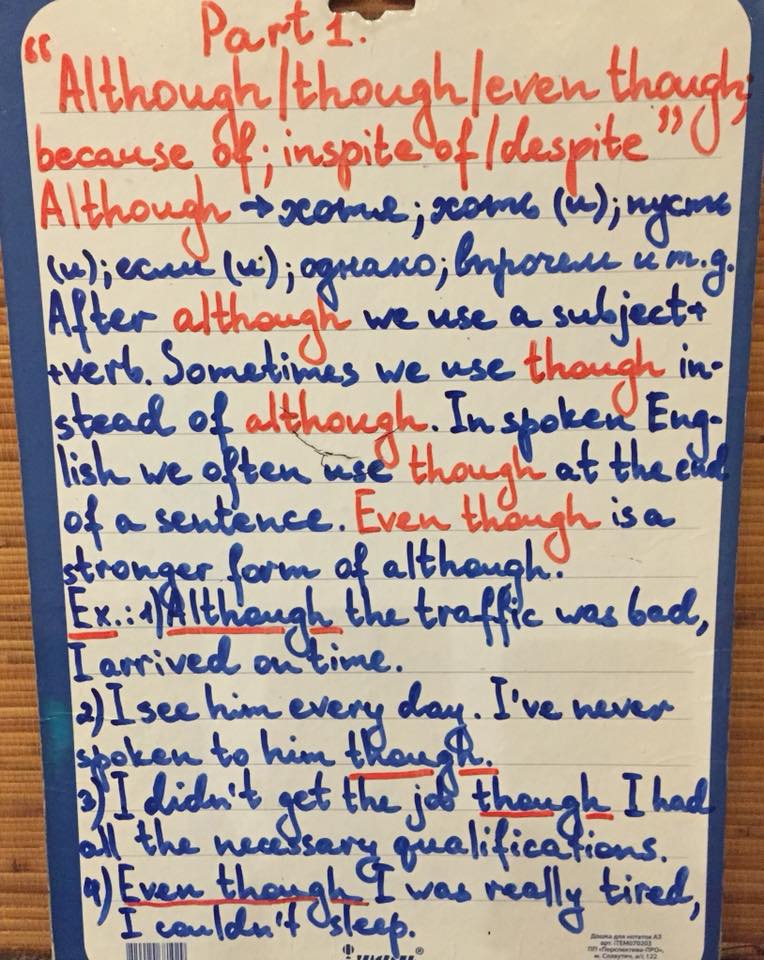 Part 1.
"Although/though/even though;
because of; inspite of/despite"
Although → хотя; хоть (и); пусть
(и); если (и); однако; впрочем и т.д.
After although we use a subject+
+verb. Sometimes we use though in-
stead of although. In spoken Eng-
lish we often use though at the end
of a sentence. Even though is a
stronger form of although.
Ex.: 1) Although the traffic was bad,
I arrived on time.
2) I see him every day. I've never
spoken to him though.
3) I didn't get the job though I had
all the necessary qualifications.
4) Even though I was really tired,
I couldn't sleep.
Дошка для нотаток А3
арт. ITEM070203
ПП "Перспектива-ПРО",
м. Славутич, а/с 122